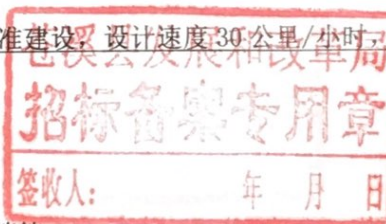 准建设，设计速度30公里/小时，
苍溪县发展和改革局
招标备案专用章
签收人： 年 月 日